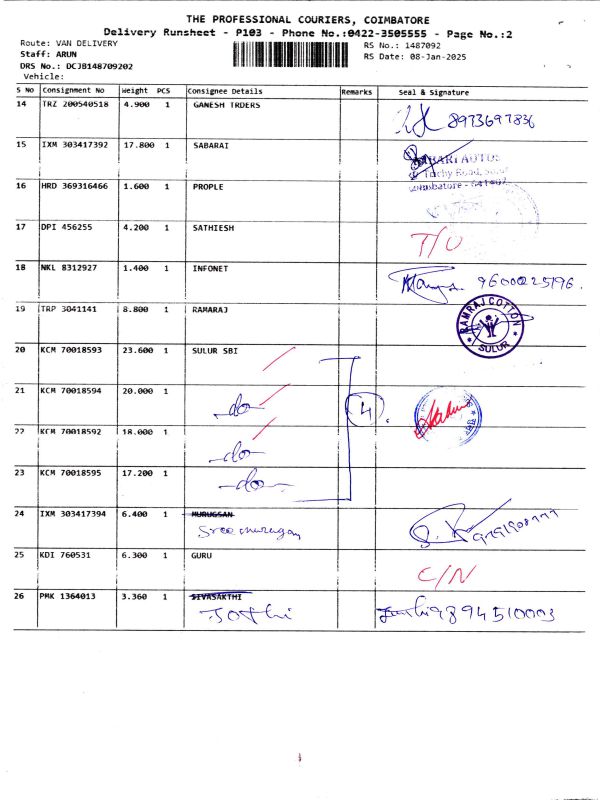 THE PROFESSIONAL COURIERS, COIMBATORE
Delivery Runsheet - P103 - Phone No.:0422-3505555 - Page No.:2
Route: VAN DELIVERY RS No.: 1487092
Staff: ARUN RS Date: 08-Jan-2025
DRS No.: DCJB148709202
Vehicle:
S No Consignment No Weight PCS Consignee Details Remarks Seal & Signature
14 TRZ 200540518 4.900 1 GANESH TRDERS
8973697836
15 IXM 303417392 17.800 1 SABARAI
Trichy Road, Sulur
Coimbatore - 641402
16 HRD 369316466 1.600 1 PROPLE
17 DPI 456255 4.200 1 SATHIESH
T/O
18 NKL 8312927 1.400 1 INFONET
9600025196.
19 TRP 3041141 8.800 1 RAMARAJ
RAMRAJ COTTON
SULUR
20 KCM 70018593 23.600 1 SULUR SBI
21 KCM 70018594 20.000 1
-do- 4
22 KCM 70018592 18.000 1
-do-
23 KCM 70018595 17.200 1
-do-
24 IXM 303417394 6.400 1 MURUGSAN
Sree murugan
25 KDI 760531 6.300 1 GURU
C/N
26 PMK 1364013 3.360 1 SIVASAKTHI
Jothi 9894510003